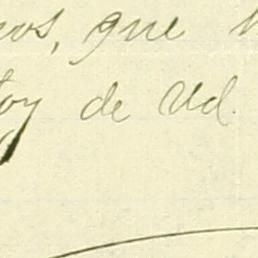 nos, que
toy de Ud.